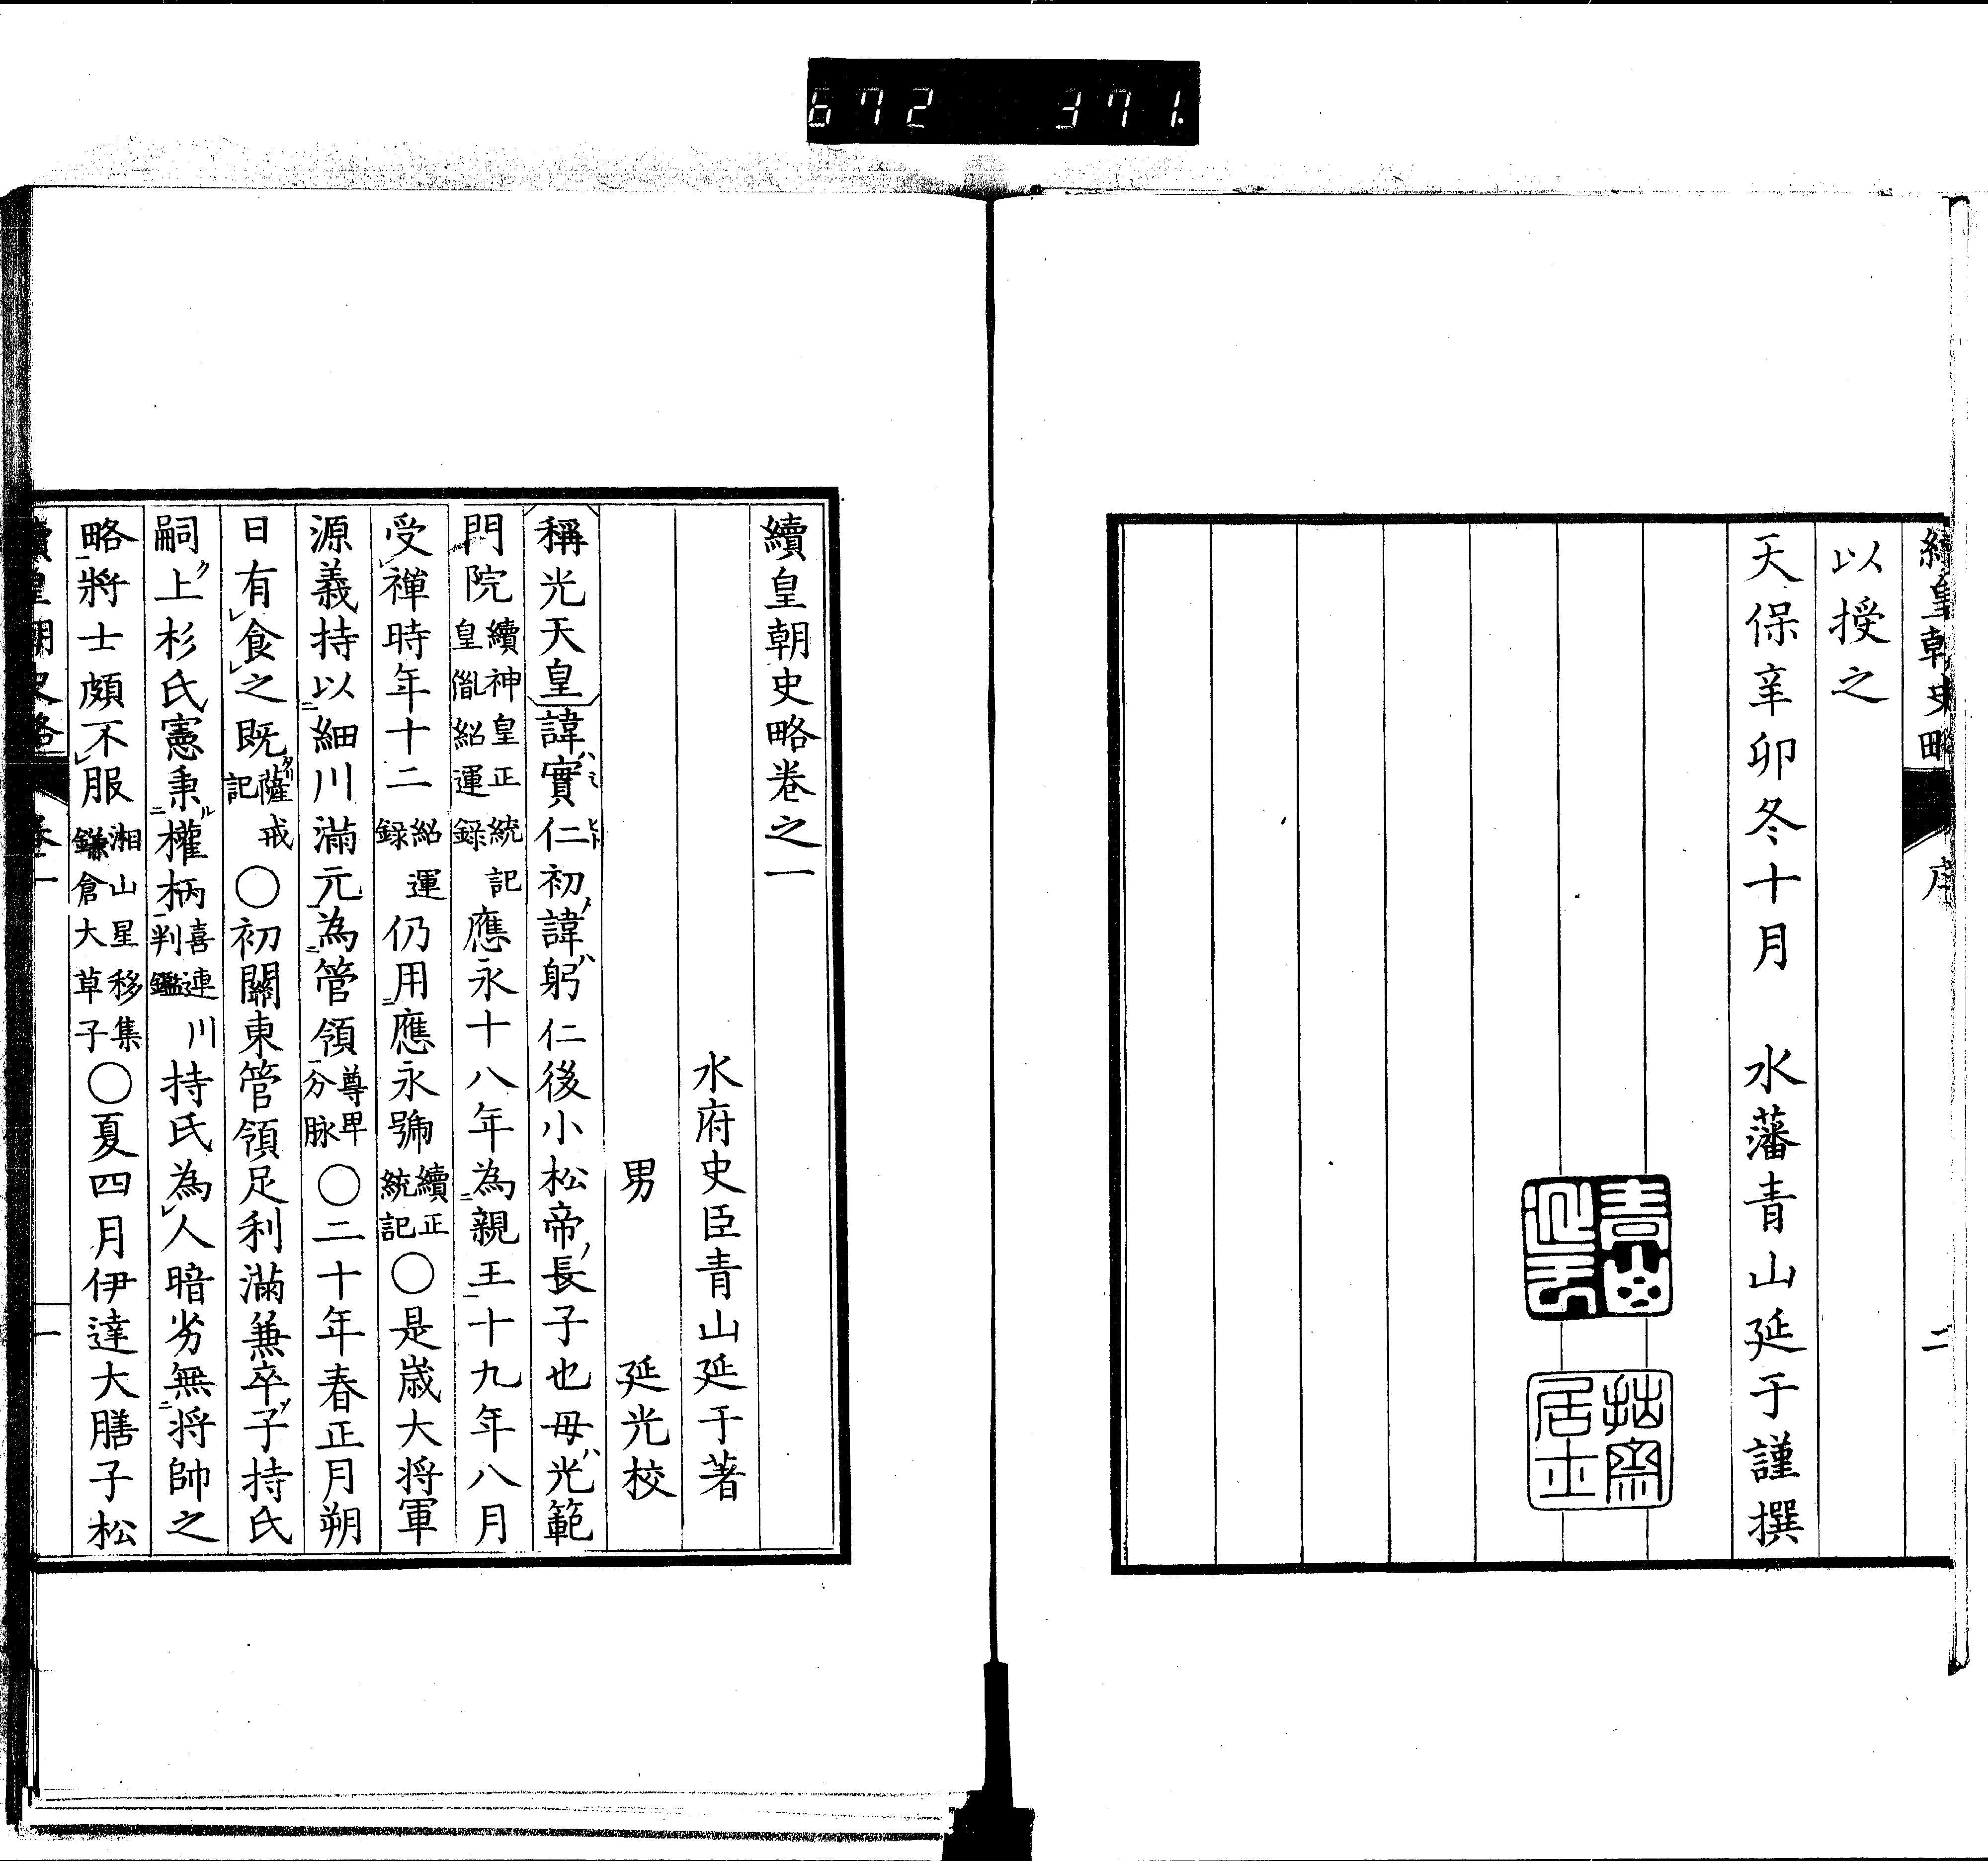 672 371.
續皇朝史略 序 二
以授之
天保辛卯冬十月 水藩青山延于謹撰
青山延于
拙齋居士
續皇朝史略卷之一
水府史臣青山延于著
男 延光校
稱光天皇諱實仁初諱躬仁後小松帝長子也母光範
門院續神皇正統記皇胤紹運錄應永十八年為親王十九年八月
受禪時年十二紹運錄仍用應永號續正統記〇是歲大将軍
源義持以細川滿元為管領尊卑分脉〇二十年春正月朔
日有食之既薩戒記〇初關東管領足利滿兼卒子持氏
嗣上杉氏憲秉權柄喜連川判鑑持氏為人暗劣無将帥之
略將士頗不服湘山星移集鎌倉大草子〇夏四月伊達大膳子松
續皇朝史略 卷一 一